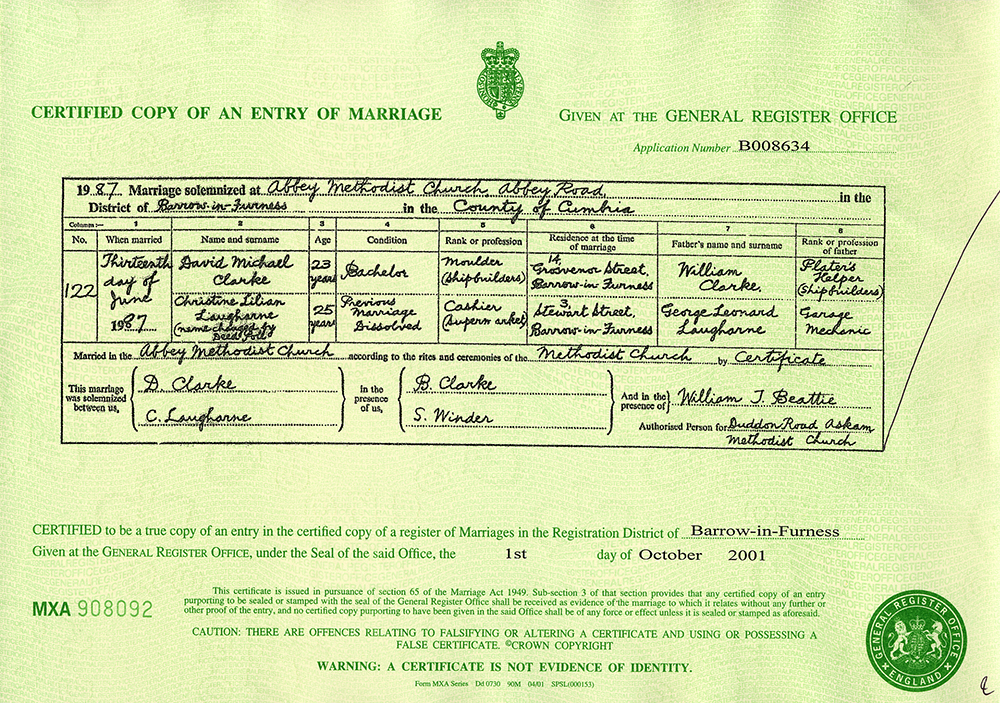 CERTIFIED COPY OF AN ENTRY OF MARRIAGE
GIVEN AT THE GENERAL REGISTER OFFICE
Application Number B008634
1987 Marriage solemnized at Abbey Methodist Church, Abbey Road, in the
District of Barrow-in-Furness in the County of Cumbria
Columns:— 1 2 3 4 5 6 7 8
No. When married Name and surname Age Condition Rank or profession Residence at the time of marriage Father's name and surname Rank or profession of father
122
Thirteenth
day of
June
1987
David Michael
Clarke
23
years
Bachelor
Moulder
(Shipbuilders)
14,
Grosvenor Street,
Barrow-in-Furness
William
Clarke.
Plater's
Helper
(Shipbuilders)
Christine Lilian
Laugharne
(name changed by
Deed Poll)
25
years
Previous
Marriage
Dissolved
Cashier
(Supermarket)
3,
Stewart Street,
Barrow-in-Furness
George Leonard
Laugharne
Garage
Mechanic
Married in the Abbey Methodist Church according to the rites and ceremonies of the Methodist Church by Certificate
This marriage
was solemnized
between us,
D. Clarke
C. Laugharne
in the
presence
of us,
B. Clarke
S. Winder
And in the
presence of
William J. Beattie
Authorised Person for Duddon Road Askam
Methodist Church
CERTIFIED to be a true copy of an entry in the certified copy of a register of Marriages in the Registration District of Barrow-in-Furness
Given at the GENERAL REGISTER OFFICE, under the Seal of the said Office, the 1st day of October 2001
MXA 908092
This certificate is issued in pursuance of section 65 of the Marriage Act 1949. Sub-section 3 of that section provides that any certified copy of an entry
purporting to be sealed or stamped with the seal of the General Register Office shall be received as evidence of the marriage to which it relates without any further or
other proof of the entry, and no certified copy purporting to have been given in the said Office shall be of any force or effect unless it is sealed or stamped as aforesaid.
CAUTION: THERE ARE OFFENCES RELATING TO FALSIFYING OR ALTERING A CERTIFICATE AND USING OR POSSESSING A
FALSE CERTIFICATE. ©CROWN COPYRIGHT
WARNING: A CERTIFICATE IS NOT EVIDENCE OF IDENTITY.
Form MXA Series Dd 0730 90M 04/01 SPSL(000153)
GENERAL REGISTER OFFICE
ENGLAND